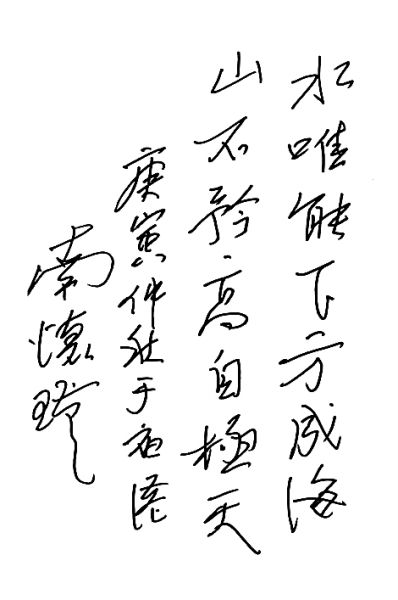 水唯能下方成海
山不矜高自極天
庚寅仲秋于庙港
南懷瑾